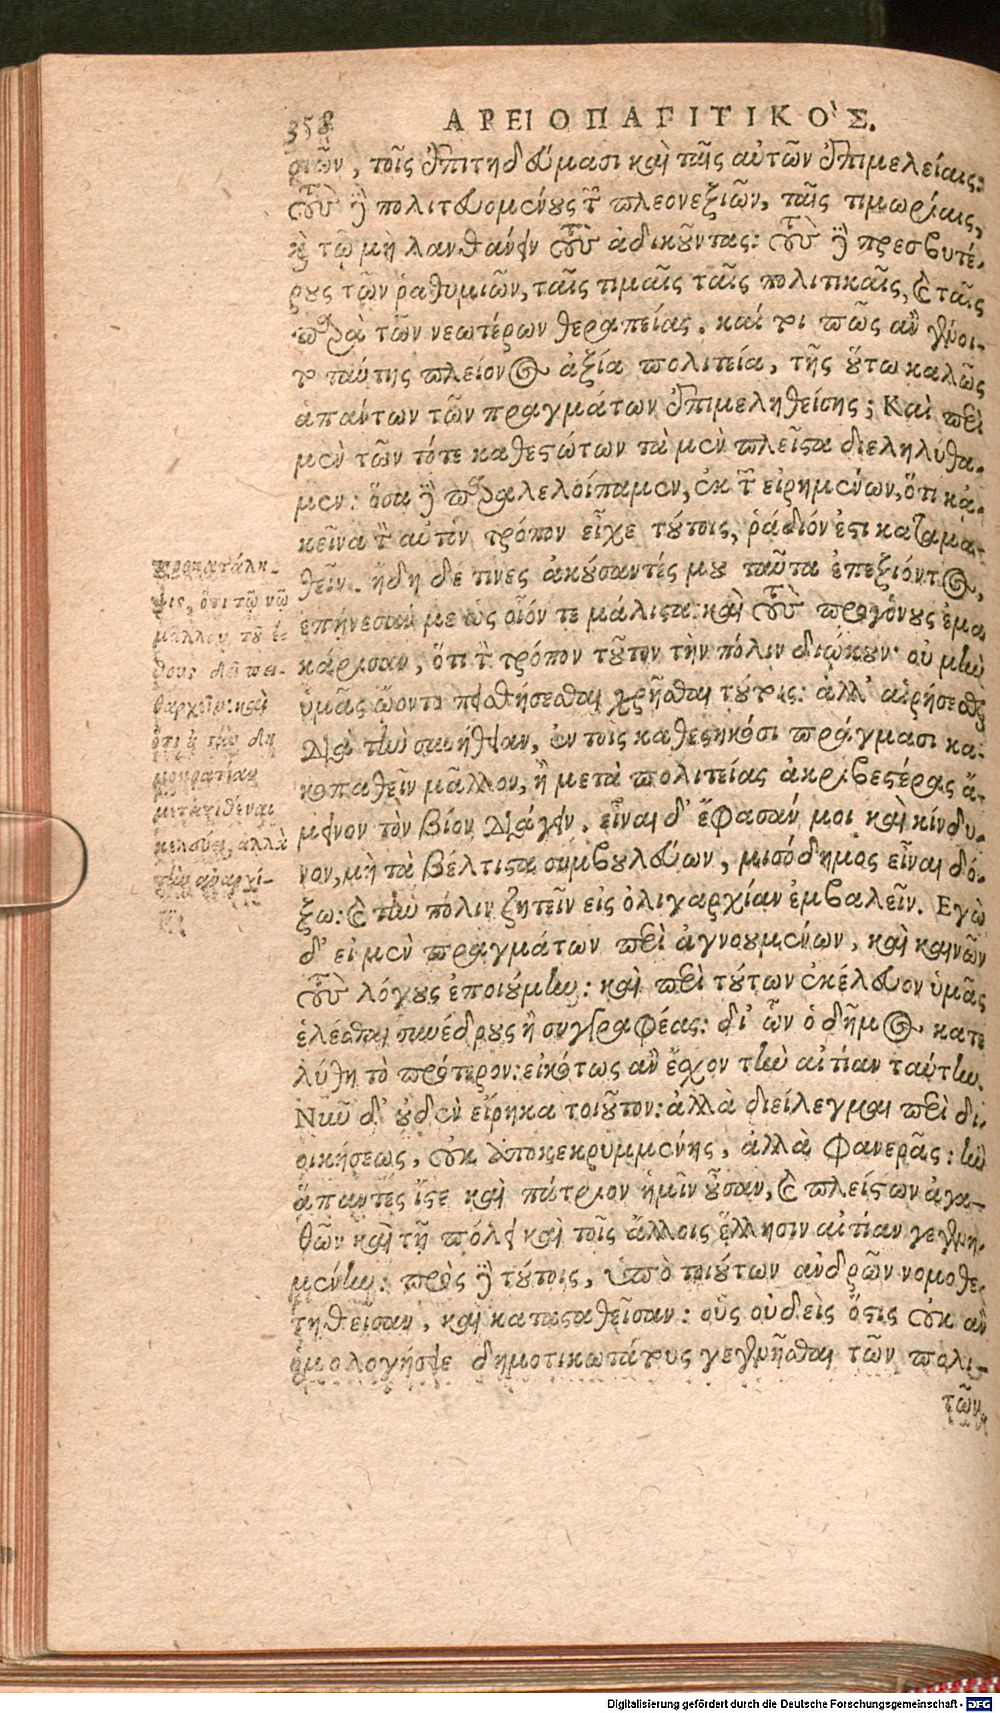 358
ΑΡΕΙΟΠΑΓΙΤΙΚΟ῀Σ.
ριῶν, τοῖς ἐπιτηδεύμασι καὶ ταῖς αὐτῶν ἐπιμελείαις:
τοὺς δὲ πολιτευομένους τῶν πλεονεξιῶν, ταῖς τιμωρίαις,
καὶ τῷ μὴ λανθάνειν τοὺς ἀδικοῦντας: τοὺς δὲ πρεσβυτέ-
ρους τῶν ῥαθυμιῶν, ταῖς τιμαῖς ταῖς πολιτικαῖς, καὶ ταῖς
παρὰ τῶν νεωτέρων θεραπείαις. καί τοι πῶς ἂν γένοι-
το ταύτης πλείονος ἀξία πολιτεία, τῆς οὕτω καλῶς
ἁπάντων τῶν πραγμάτων ἐπιμεληθείσης; Καὶ περὶ
μὲν τῶν τότε καθεστώτων τὰ μὲν πλεῖστα διεληλύθα-
μεν: ὅσα δὲ παραλελοίπαμεν, ἐκ τῶν εἰρημένων, ὅτι κἀ-
κεῖνα τὸν αὐτὸν τρόπον εἶχε τούτοις, ῥᾴδιόν ἐστι καταμα-
θεῖν. ἤδη δέ τινες ἀκούσαντές μου ταῦτα ἐπεξιόντος,
ἐπῄνεσαν με ὡς οἷόν τε μάλιστα: καὶ τοὺς προγόνους ἐμα
κάρισαν, ὅτι τὸν τρόπον τοῦτον τὴν πόλιν διῴκουν· οὐ μὴν
ὑμᾶς ᾤοντο πεισθήσεσθαι χρῆσθαι τούτοις: ἀλλ' αἱρήσεσθαι
διὰ τὴν συνήθειαν, ἐν τοῖς καθεστηκόσι πράγμασι κα-
κοπαθεῖν μᾶλλον, ἢ μετὰ πολιτείας ἀκριβεστέρας ἄ-
μεινον τὸν βίον διάγειν. εἶναι δ' ἔφασάν μοι καὶ κίνδυ-
νον, μὴ τὰ βέλτιστα συμβουλεύων, μισόδημος εἶναι δό-
ξω: καὶ τὴν πόλιν ζητεῖν εἰς ὀλιγαρχίαν ἐμβαλεῖν. Εγὼ
δ' εἰ μὲν πραγμάτων περὶ ἀγνοουμένων, καὶ καινῶν
τοὺς λόγους ἐποιούμην: καὶ περὶ τούτων ἐκέλευον ὑμᾶς
ἑλέσθαι συνέδρους ἢ συγγραφέας: δι' ὧν ὁ δῆμος κατε
λύθη τὸ πρότερον: εἰκότως ἂν ἔχον τὴν αἰτίαν ταύτην.
Νῦν δ' οὐδὲν εἴρηκα τοιοῦτον: ἀλλὰ διείλεγμαι περὶ δι-
οικήσεως, οὐκ ἀποκεκρυμμένης, ἀλλὰ φανερᾶς: ἣν
ἅπαντες ἴστε καὶ πάτριον ἡμῖν οὖσαν, καὶ πλείστων ἀγα-
θῶν καὶ τῇ πόλει καὶ τοῖς ἄλλοις ἕλλησιν αἰτίαν γεγενη-
μένην: πρὸς δὲ τούτοις, ὑπὸ τοιούτων ἀνδρῶν νομοθε-
τηθεῖσαν, καὶ κατασταθεῖσαν: οὓς οὐδεὶς ὅστις οὐκ ἂν
ὁμολογήσειε δημοτικωτάτους γεγενῆσθαι τῶν πολι-
τῶν,
προκατάλη-
ψις, ὅτι τῷ νῷ
μᾶλλον τοῦ ἔ-
θους δεῖ πει-
θαρχεῖν: καὶ
ὅτι οὐ τὴν δη
μοκρατίαν
μετατιθέναι
κελεύει, ἀλλὰ
Digitalisierung gefördert durch die Deutsche Forschungsgemeinschaft - DFG